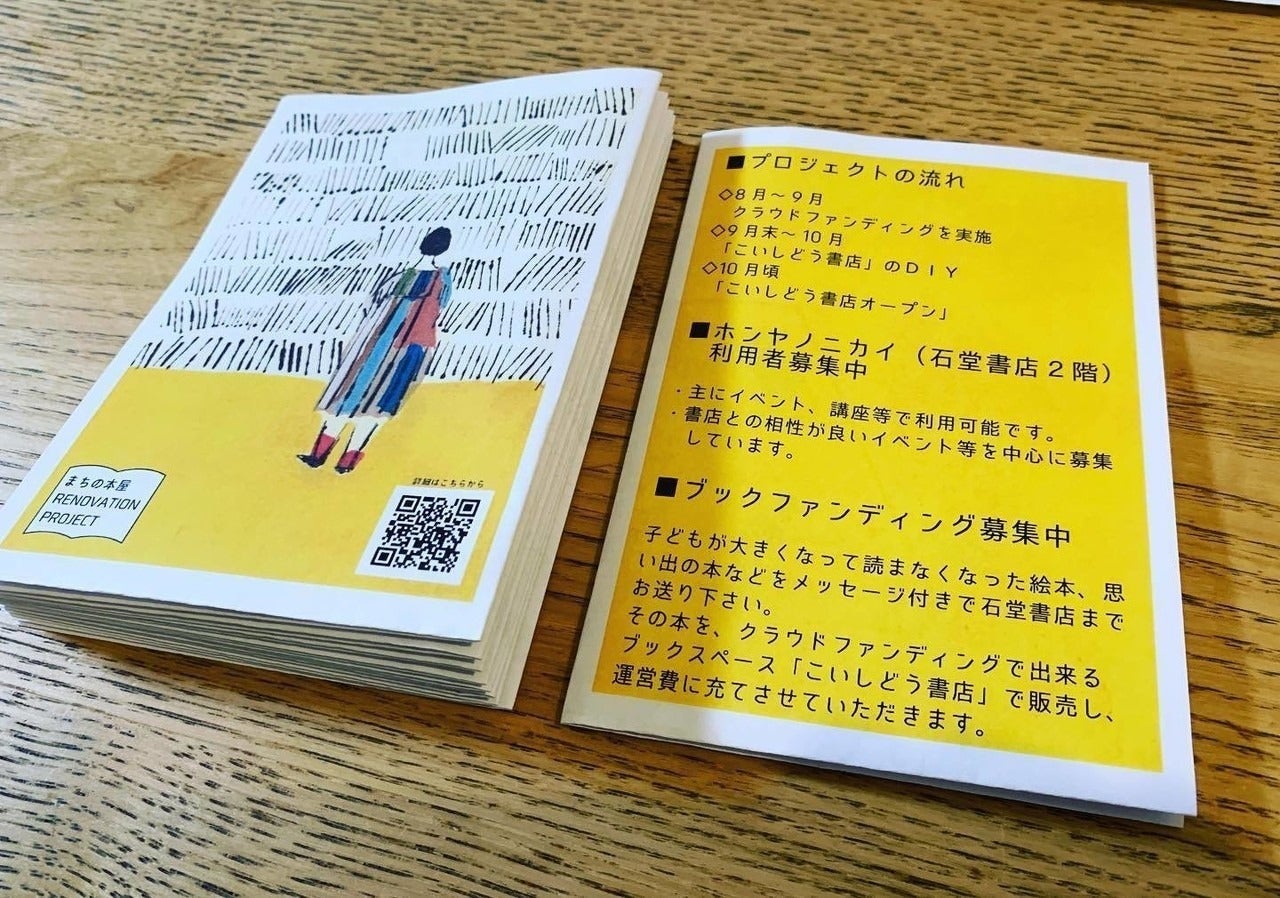 まちの本屋
RENOVATION
PROJECT
詳細はこちらから
■プロジェクトの流れ
◇8月～9月
クラウドファンディングを実施
◇9月末～10月
「こいしどう書店」のDIY
◇10月頃
「こいしどう書店オープン」
■ホンヤノニカイ（石堂書店2階）
利用者募集中
・主にイベント、講座等で利用可能です。
・書店との相性が良いイベント等を中心に募集
しています。
■ブックファンディング募集中
子どもが大きくなって読まなくなった絵本、思
い出の本などをメッセージ付きで石堂書店まで
お送り下さい。
その本を、クラウドファンディングで出来る
ブックスペース「こいしどう書店」で販売し、
運営費に充てさせていただきます。